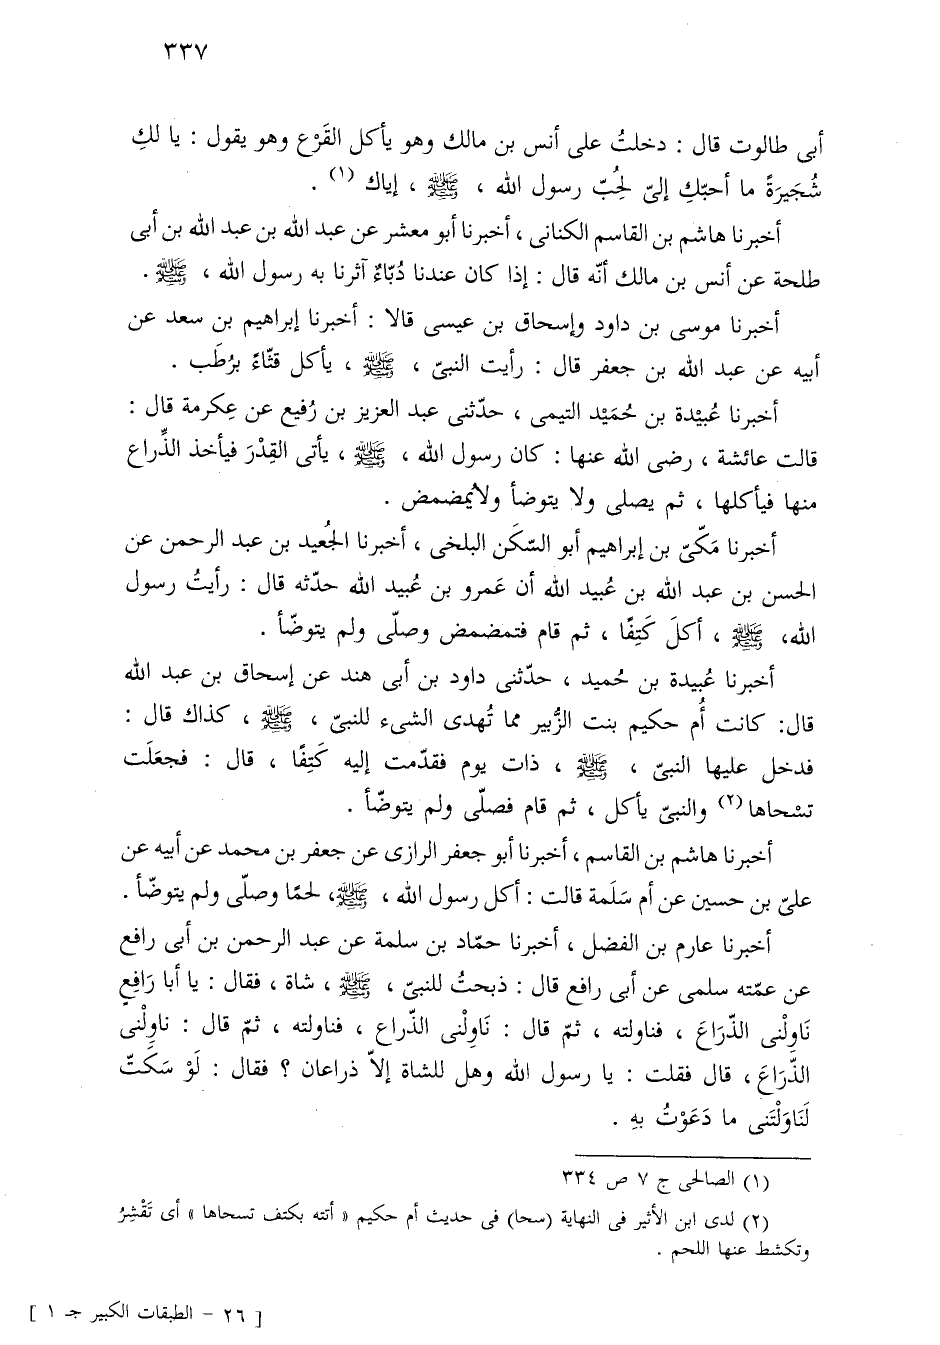 ٣٣٧
أبى طالوت قال : دخلتُ على أنس بن مالك وهو يأكل القَرْع وهو يقول : يا لكِ
شُجَيرَةً ما أحبّكِ إلىّ لحُبّ رسول الله ، ﷺ ، إياك (١) .
أخبرنا هاشم بن القاسم الكنانى ، أخبرنا أبو معشر عن عبد الله بن عبد الله بن أبى
طلحة عن أنس بن مالك أنّه قال : إذا كان عندنا دُبّاءٌ آثرنا به رسول الله ، ﷺ .
أخبرنا موسى بن داود وإسحاق بن عيسى قالا : أخبرنا إبراهيم بن سعد عن
أبيه عن عبد الله بن جعفر قال : رأيت النبىّ ، ﷺ ، يأكل قثّاءً برُطَب .
أخبرنا عُبيْدة بن حُمَيْد التيمى ، حدّثنى عبد العزيز بن رُفيع عن عِكرمة قال :
قالت عائشة ، رضى الله عنها : كان رسول الله ، ﷺ ، يأتى القِدْرَ فيأخذ الذِّراع
منها فيأكلها ، ثم يصلى ولا يتوضأ ولا يُمضمض .
أخبرنا مَكّىّ بن إبراهيم أبو السّكَن البلخى ، أخبرنا الجُعيد بن عبد الرحمن عن
الحسن بن عبد الله بن عُبيد الله أن عَمرو بن عُبيد الله حدّثه قال : رأيتُ رسول
الله، ﷺ ، أكلَ كَتِفًا ، ثم قام فتمضمض وصلّى ولم يتوضّأ .
أخبرنا عُبيدة بن حُميد ، حدّثنى داود بن أبى هند عن إسحاق بن عبد الله
قال: كانت أُم حكيم بنت الزُّبير مما تُهدى الشىء للنبىّ ، ﷺ ، كذاك قال :
فدخل عليها النبىّ ، ﷺ ، ذات يوم فقدّمت إليه كَتِفًا ، قال : فجعَلَت
تسْحاها (٢) والنبىّ يأكل ، ثم قام فصلّى ولم يتوضّأ .
أخبرنا هاشم بن القاسم ، أخبرنا أبو جعفر الرازى عن جعفر بن محمد عن أبيه عن
علىّ بن حسين عن أم سَلَمة قالت : أكل رسول الله ، ﷺ، لحمًا وصلّى ولم يتوضّأ .
أخبرنا عارم بن الفضل ، أخبرنا حمّاد بن سلمة عن عبد الرحمن بن أبى رافع
عن عمّته سلمى عن أبى رافع قال : ذبحتُ للنبىّ ، ﷺ ، شاة ، فقال : يا أبا رَافِعٍ
نَاوِلْنى الذّرَاعَ ، فناولته ، ثمّ قال : نَاوِلْنى الذّراع ، فناولته ، ثمّ قال : ناوِلْنى
الذّرَاعَ، قال فقلت : يا رسول الله وهل للشاة إلاّ ذراعان ؟ فقال : لَوْ سَكَتّ
لَنَاوَلْتَنى ما دَعَوْتُ بهِ .
(١) الصالحى ج ٧ ص ٣٣٤
(٢) لدى ابن الأثير فى النهاية (سحا) فى حديث أم حكيم « أتته بكتف تسحاها » أى تَقْشِرُ
وتكشط عنها اللحم .
[ ٢٦ – الطبقات الكبير جـ ١ ]